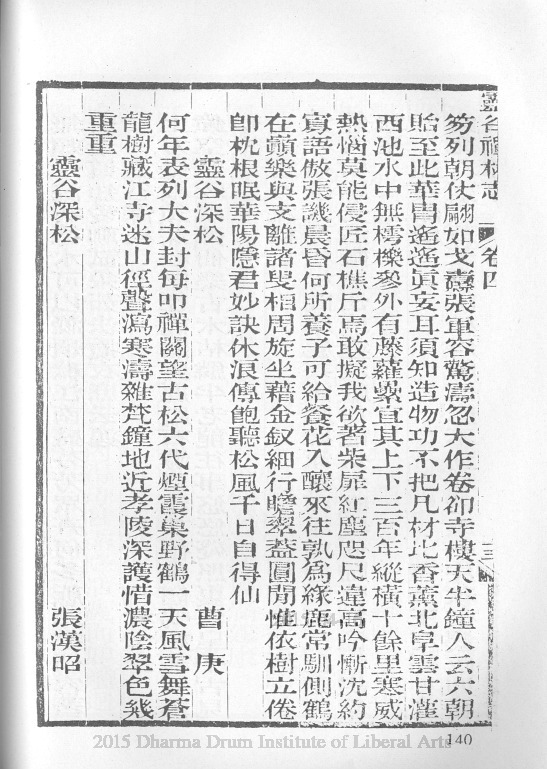 靈谷禪林志 卷四
笏列朝仗翩如戈纛張軍容驚濤忽大作卷卻寺樓天半鐘人云六朝
貽至此華冑遙遙眞妄且須知造物功不把凡材比香薰北阜雲甘灌
西池水中無樗櫟參外有藤蘿纍宜其上下三百年縱橫十餘里寒威
熱惱莫能侵匠石樵斤焉敢擬我欲著柴扉紅塵咫尺違高吟慚沈約
寡語傲張譏晨昏何所養子可給餐花入釀來往孰爲緣鹿常馴側鶴
在巔樂與支離諸叟相周旋坐藉金釵細行瞻翠蓋圓閒惟依樹立倦
卽枕根眠華陽隱君妙訣休浪傳飽聽松風千日自得仙
靈谷深松 曹庚
何年表列大夫封每叩禪關望古松六代煙霞巢野鶴一天風雪舞蒼
龍樹藏江寺迷山徑聲瀉寒濤雜梵鐘地近孝陵深護惜濃陰翠色幾
重重
靈谷深松 張漢昭
2015 Dharma Drum Institute of Liberal Arts
140